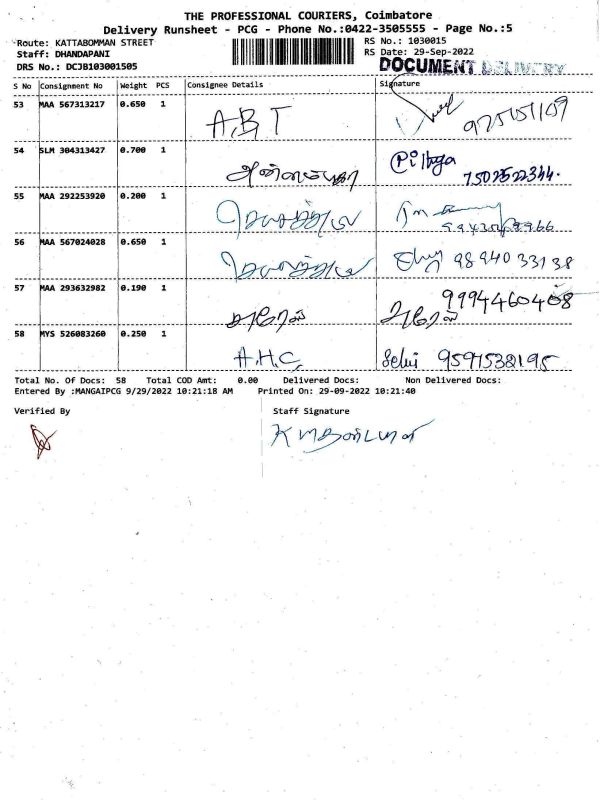 THE PROFESSIONAL COURIERS, Coimbatore
Delivery Runsheet - PCG - Phone No.:0422-3505555 - Page No.:5
Route: KATTABOMMAN STREET RS No.: 1030015
Staff: DHANDAPANI RS Date: 29-Sep-2022
DRS No.: DCJB103001505 DOCUMENT DELIVERY
S No Consignment No Weight PCS Consignee Details Signature
53 MAA 567313217 0.650 1 A.B.T
54 SLM 304313427 0.700 1 7502522344.
55 MAA 292253920 0.200 1
56 MAA 567024028 0.650 1 98940 33138
57 MAA 293632982 0.190 1 9994460408
58 MYS 526083260 0.250 1 A.H.C, Selvi 9597538195
Total No. Of Docs: 58 Total COD Amt: 0.00 Delivered Docs: Non Delivered Docs:
Entered By :MANGAIPCG 9/29/2022 10:21:18 AM Printed On: 29-09-2022 10:21:40
Verified By Staff Signature